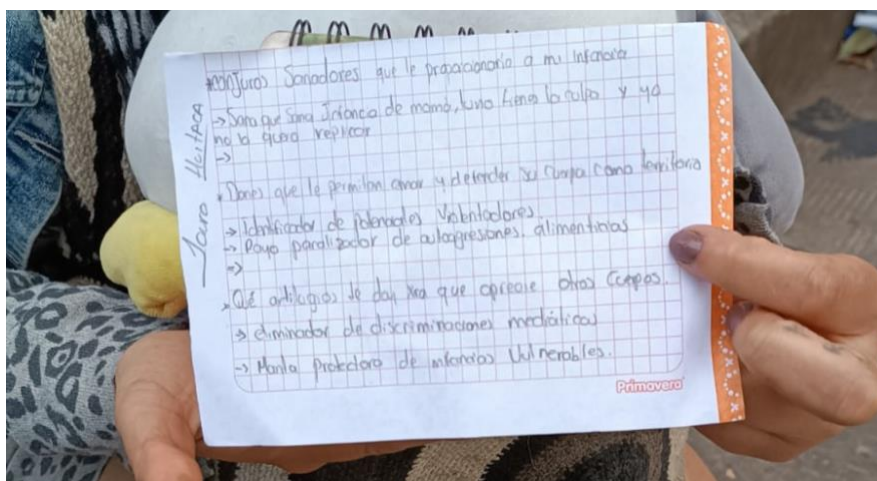 conjuros Sanadores que le proporcionaria a mi Infancia
→ Sana que Sana Infancia de mamá, tu no tienes la culpa y yo
no la quiero replicar
→
Dones que le permitan amar y defender su cuerpo como territorio
→ Identificador de potenciales Violentadores.
→ Rayo paralizador de autoagresiones. alimenticias
→
Qué artilugios le dan para que aprecie otros Cuerpos.
→ eliminador de discriminaciones mediáticas
→ Manta protectora de infancias Vulnerables.
Primavera